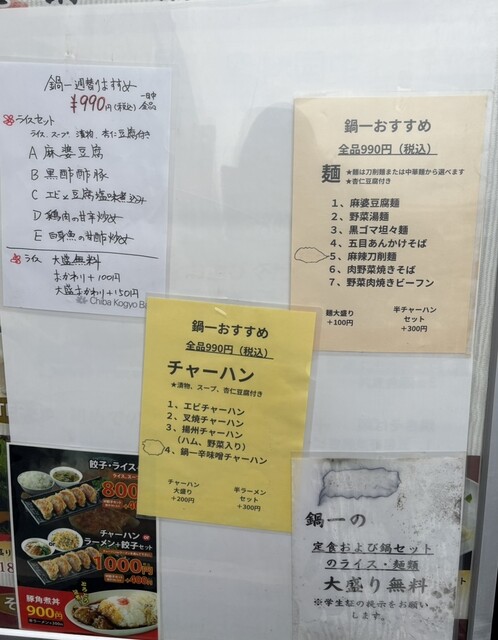 鍋一週替りおすすめ
¥990円(税込) 一日中全品
ライスセット
ライス、スープ、漬物、杏仁豆腐付き
A 麻婆豆腐
B 黒酢酢豚
C エビと豆腐塩味煮込み
D 鶏肉の甘辛炒め
E 白身魚の甘酢炒め
ライス 大盛無料
おかわり+100円
大盛おかわり+150円
Chiba Kogyo Ba
鍋一おすすめ
全品990円（税込）
麺 ★麺は刀削麺または中華麺から選べます
★杏仁豆腐付き
1、麻婆豆腐麺
2、野菜湯麺
3、黒ゴマ坦々麺
4、五目あんかけそば
5、麻辣刀削麺
6、肉野菜焼きそば
7、野菜肉焼きビーフン
麺大盛り
+100円
半チャーハン
セット
+300円
鍋一おすすめ
全品990円（税込）
チャーハン
★漬物、スープ、杏仁豆腐付き
1、エビチャーハン
2、叉焼チャーハン
3、揚州チャーハン
（ハム、野菜入り）
4、鍋一辛味噌チャーハン
チャーハン
大盛り
+200円
半ラーメン
セット
+300円
餃子・ライス
800
チャーハン
ラーメン+餃子セット
1000円
豚角煮丼
900円
鍋一の
定食および鍋セット
のライス・麺類
大盛り無料
※学生証の提示をお願い
します。